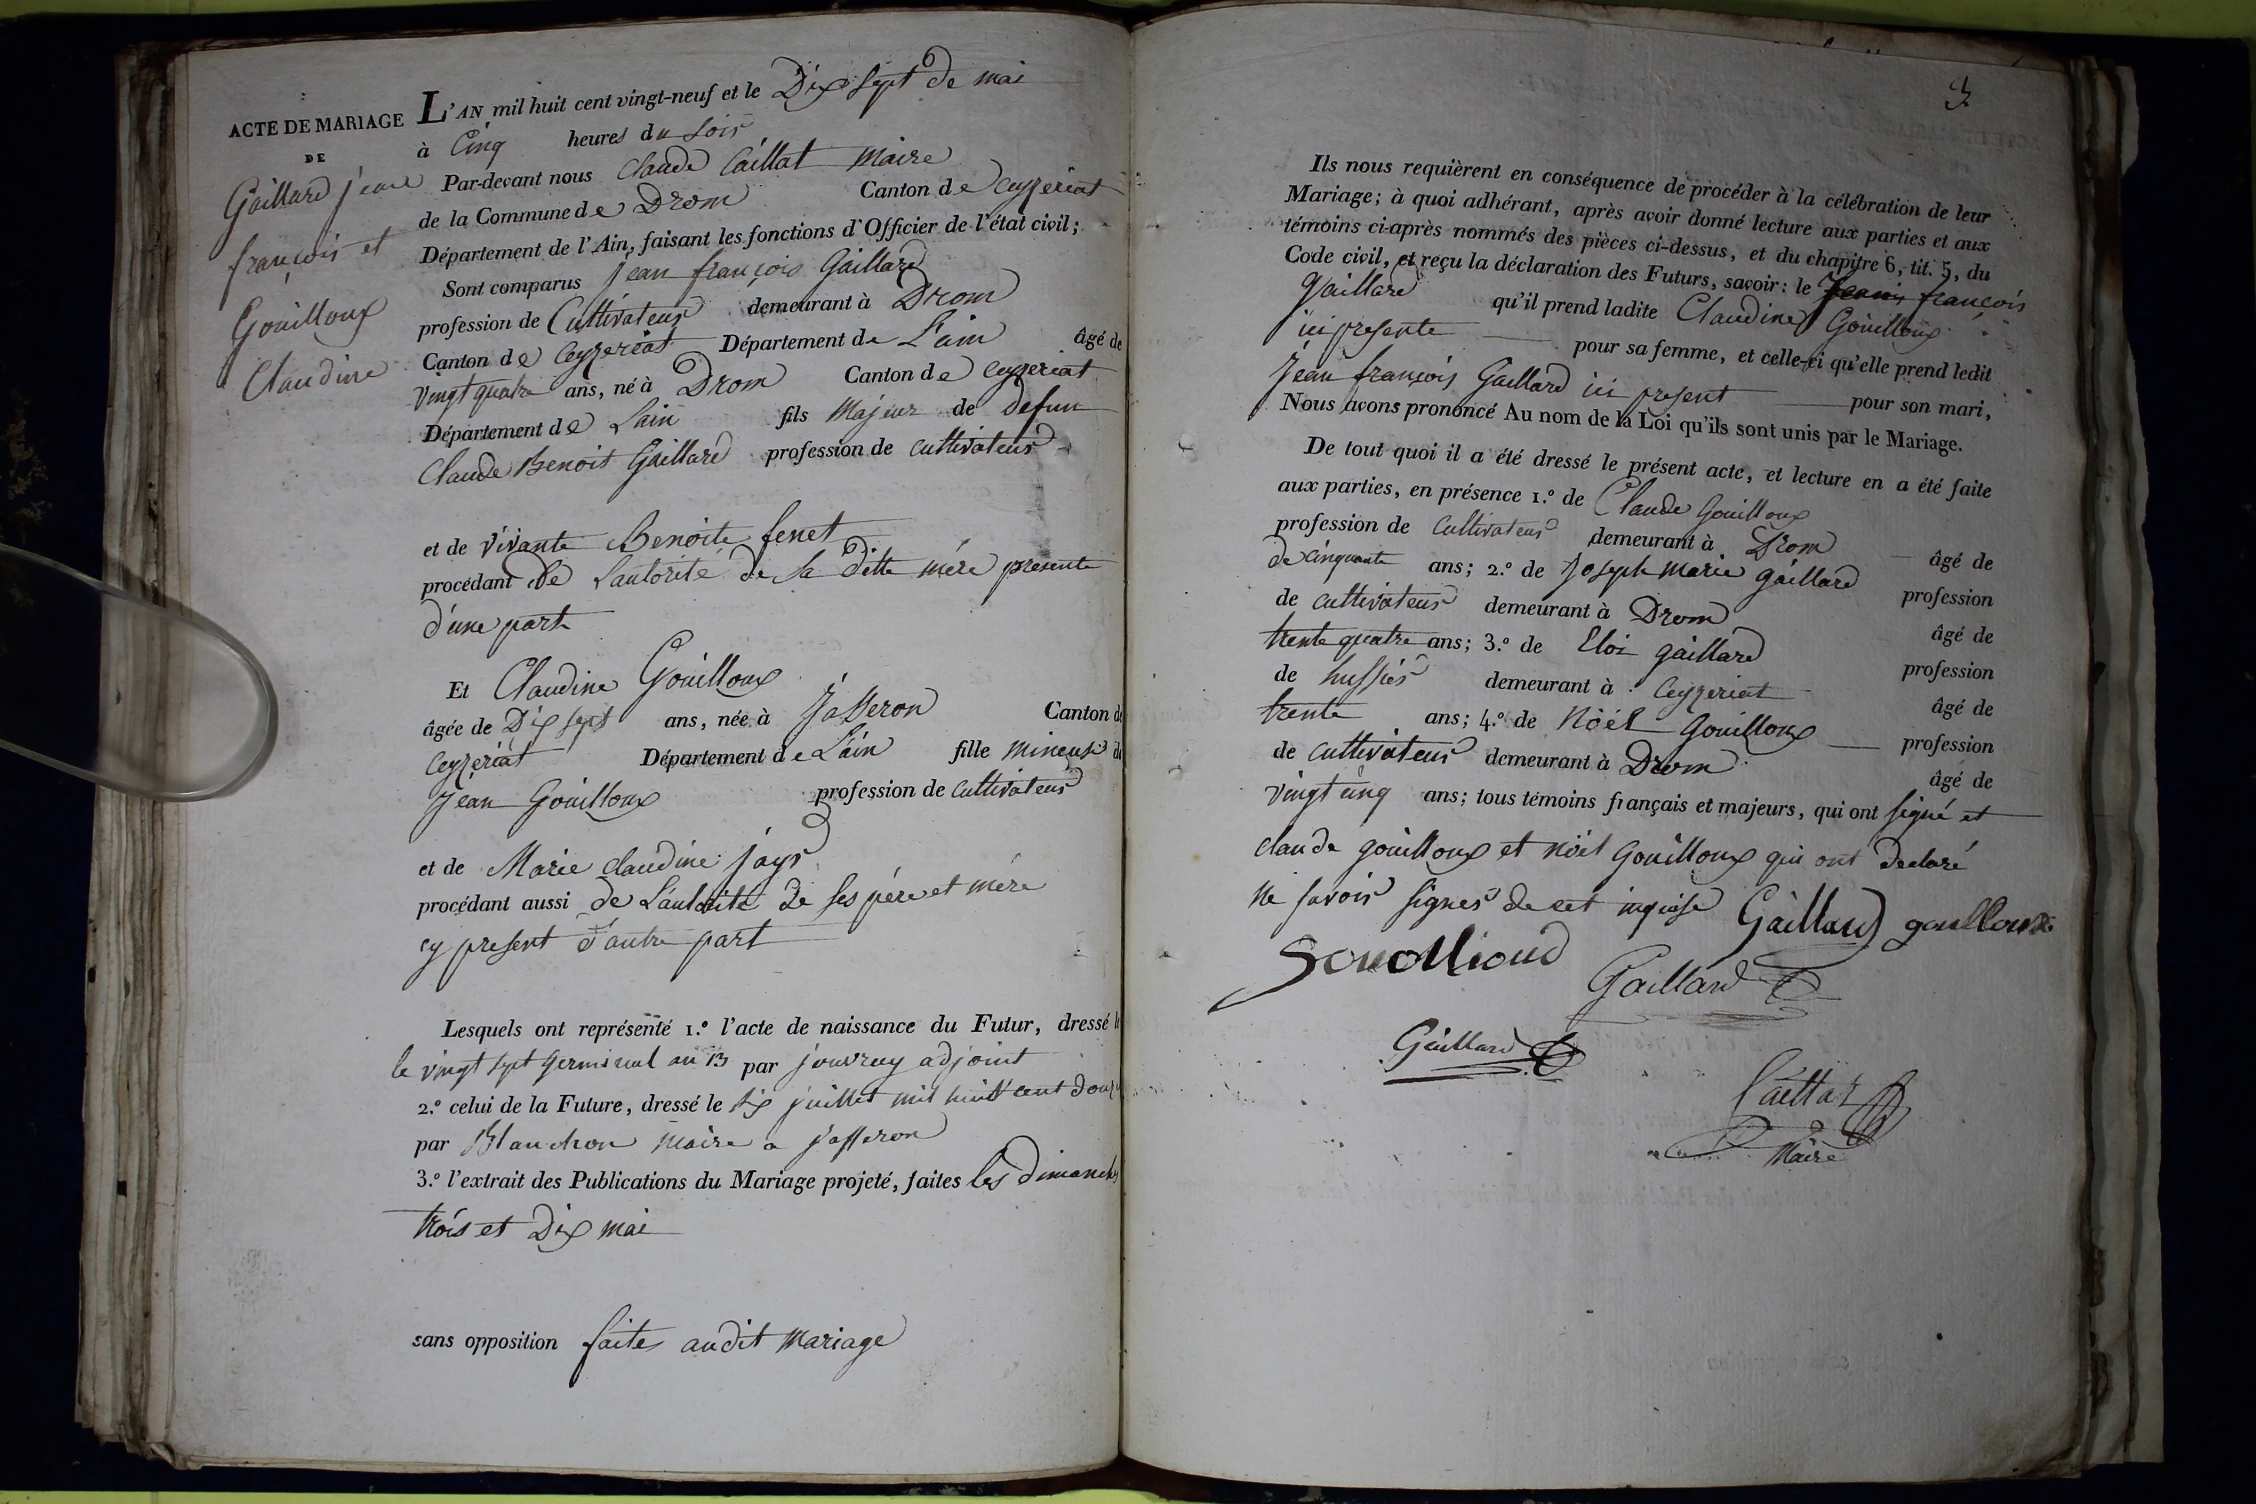 ACTE DE MARIAGE
DE
Gaillard jean
françois et
Gouilloux
Claudine
L'AN mil huit cent vingt-neuf et le Dix sept de mai
à Cinq heures du Soir
Par-devant nous Claude Caillat Maire
de la Commune de Drom Canton de Ceyzeriat
Département de l'Ain, faisant les fonctions d'Officier de l'état civil;
Sont comparus jean françois Gaillard
profession de Cultivateur demeurant à Drom
Canton de Ceyzeriat Département de L'ain âgé de
vingt quatre ans, né à Drom Canton de Ceyzeriat
Département de Lain fils Majeur de defun
Claude Benoit Gaillard profession de cultivateur
et de vivante Benoite fenet
procédant de Lautorité de Sa ditte mére presente
d'une part
Et Claudine Gouilloux
âgée de Dix sept ans, née à Jasseron Canton de
Ceyzeriat Département de L'ain fille mineuse de
Jean Gouilloux profession de Cultivateur
et de Marie Claudine jays
procédant aussi de L'autorité de Ses père et mére
cy present d'autre part
Lesquels ont représenté 1.º l'acte de naissance du Futur, dressé le
le vingt sept Germinal an 13 par jouvray adjoint
2.º celui de la Future, dressé le six juillet mil huit cent douze
par Blanchon Maire a jasseron
3.º l'extrait des Publications du Mariage projeté, faites les dimanches
trois et Dix mai
sans opposition faites audit Mariage
3
Ils nous requièrent en conséquence de procéder à la célébration de leur
Mariage; à quoi adhérant, après avoir donné lecture aux parties et aux
témoins ci-après nommés des pièces ci-dessus, et du chapitre 6, tit. 5, du
Code civil, et reçu la déclaration des Futurs, savoir: le Jean françois
Gaillard qu'il prend ladite Claudine Gouilloux
ici presente pour sa femme, et celle-ci qu'elle prend ledit
Jean françois Gaillard ici present pour son mari,
Nous avons prononcé Au nom de la Loi qu'ils sont unis par le Mariage.
De tout quoi il a été dressé le présent acte, et lecture en a été faite
aux parties, en présence 1.º de Claude Gouilloux
profession de Cultivateur demeurant à Drom âgé de
de cinquante ans; 2.º de Joseph Marie Gaillard profession
de cultivateur demeurant à Drom âgé de
trente quatre ans; 3.º de Eloi gaillard profession
de hussier demeurant à Ceyzeriat âgé de
trente ans; 4.º de Nöel Gouilloux profession
de cultivateur demeurant à Drom âgé de
vingt cinq ans; tous témoins français et majeurs, qui ont signé et
claude gouilloux et nöel Gouilloux qui ont declaré
ne savoir signer de cet Gaillard gouilloux
Gaillard
Gaillard
Caillat
Maire